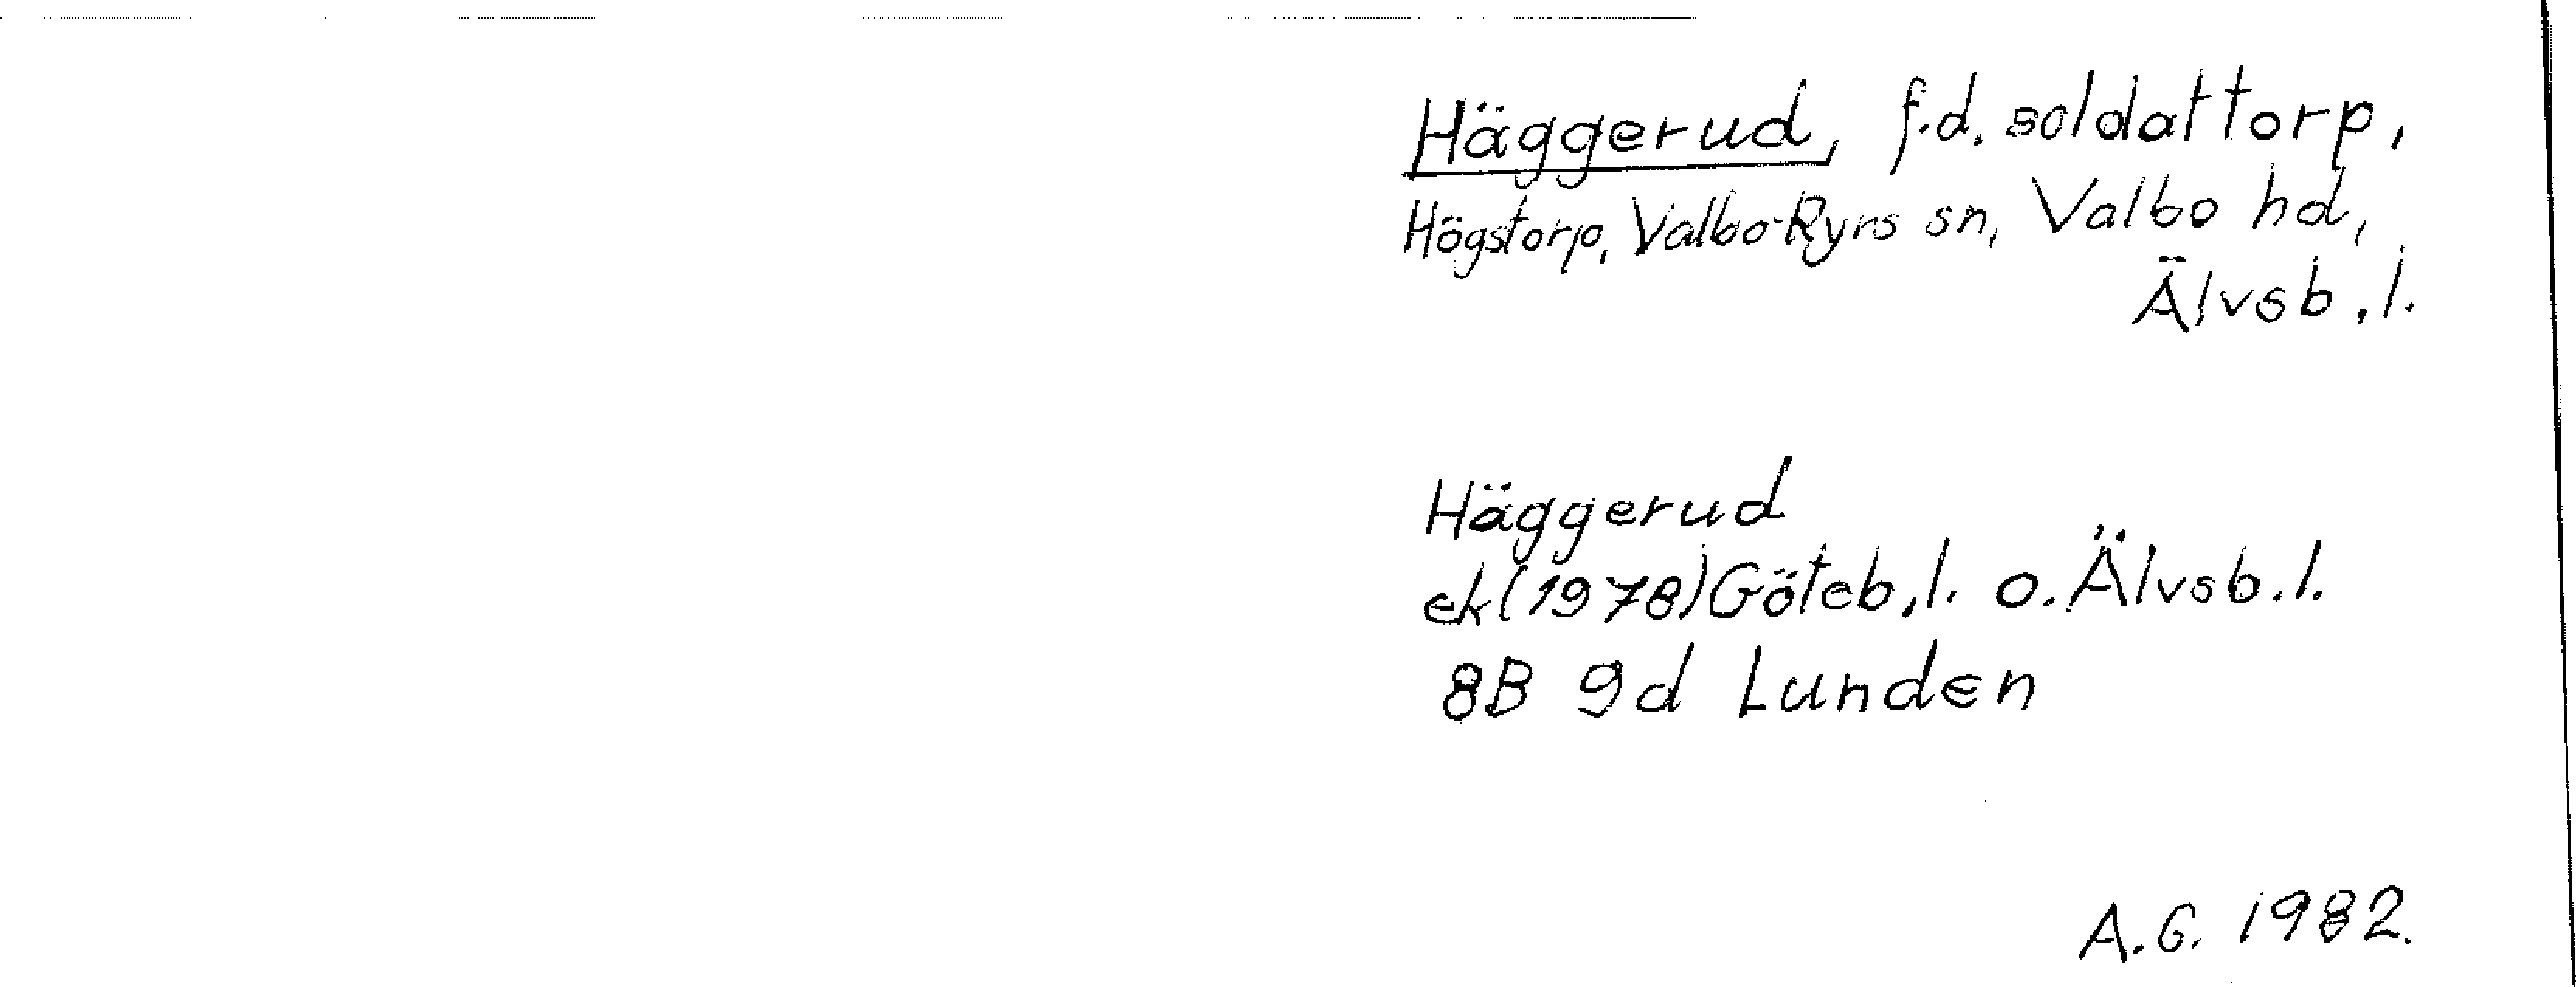 Häggerud, f.d. soldattorp,
Högstorp, Valbo-Ryrs sn, Valbo hd,
Älvsb.l.
Häggerud
ek(1978)Göteb.l. o. Älvsb.l.
8B 9d Lunden
A.G. 1982.